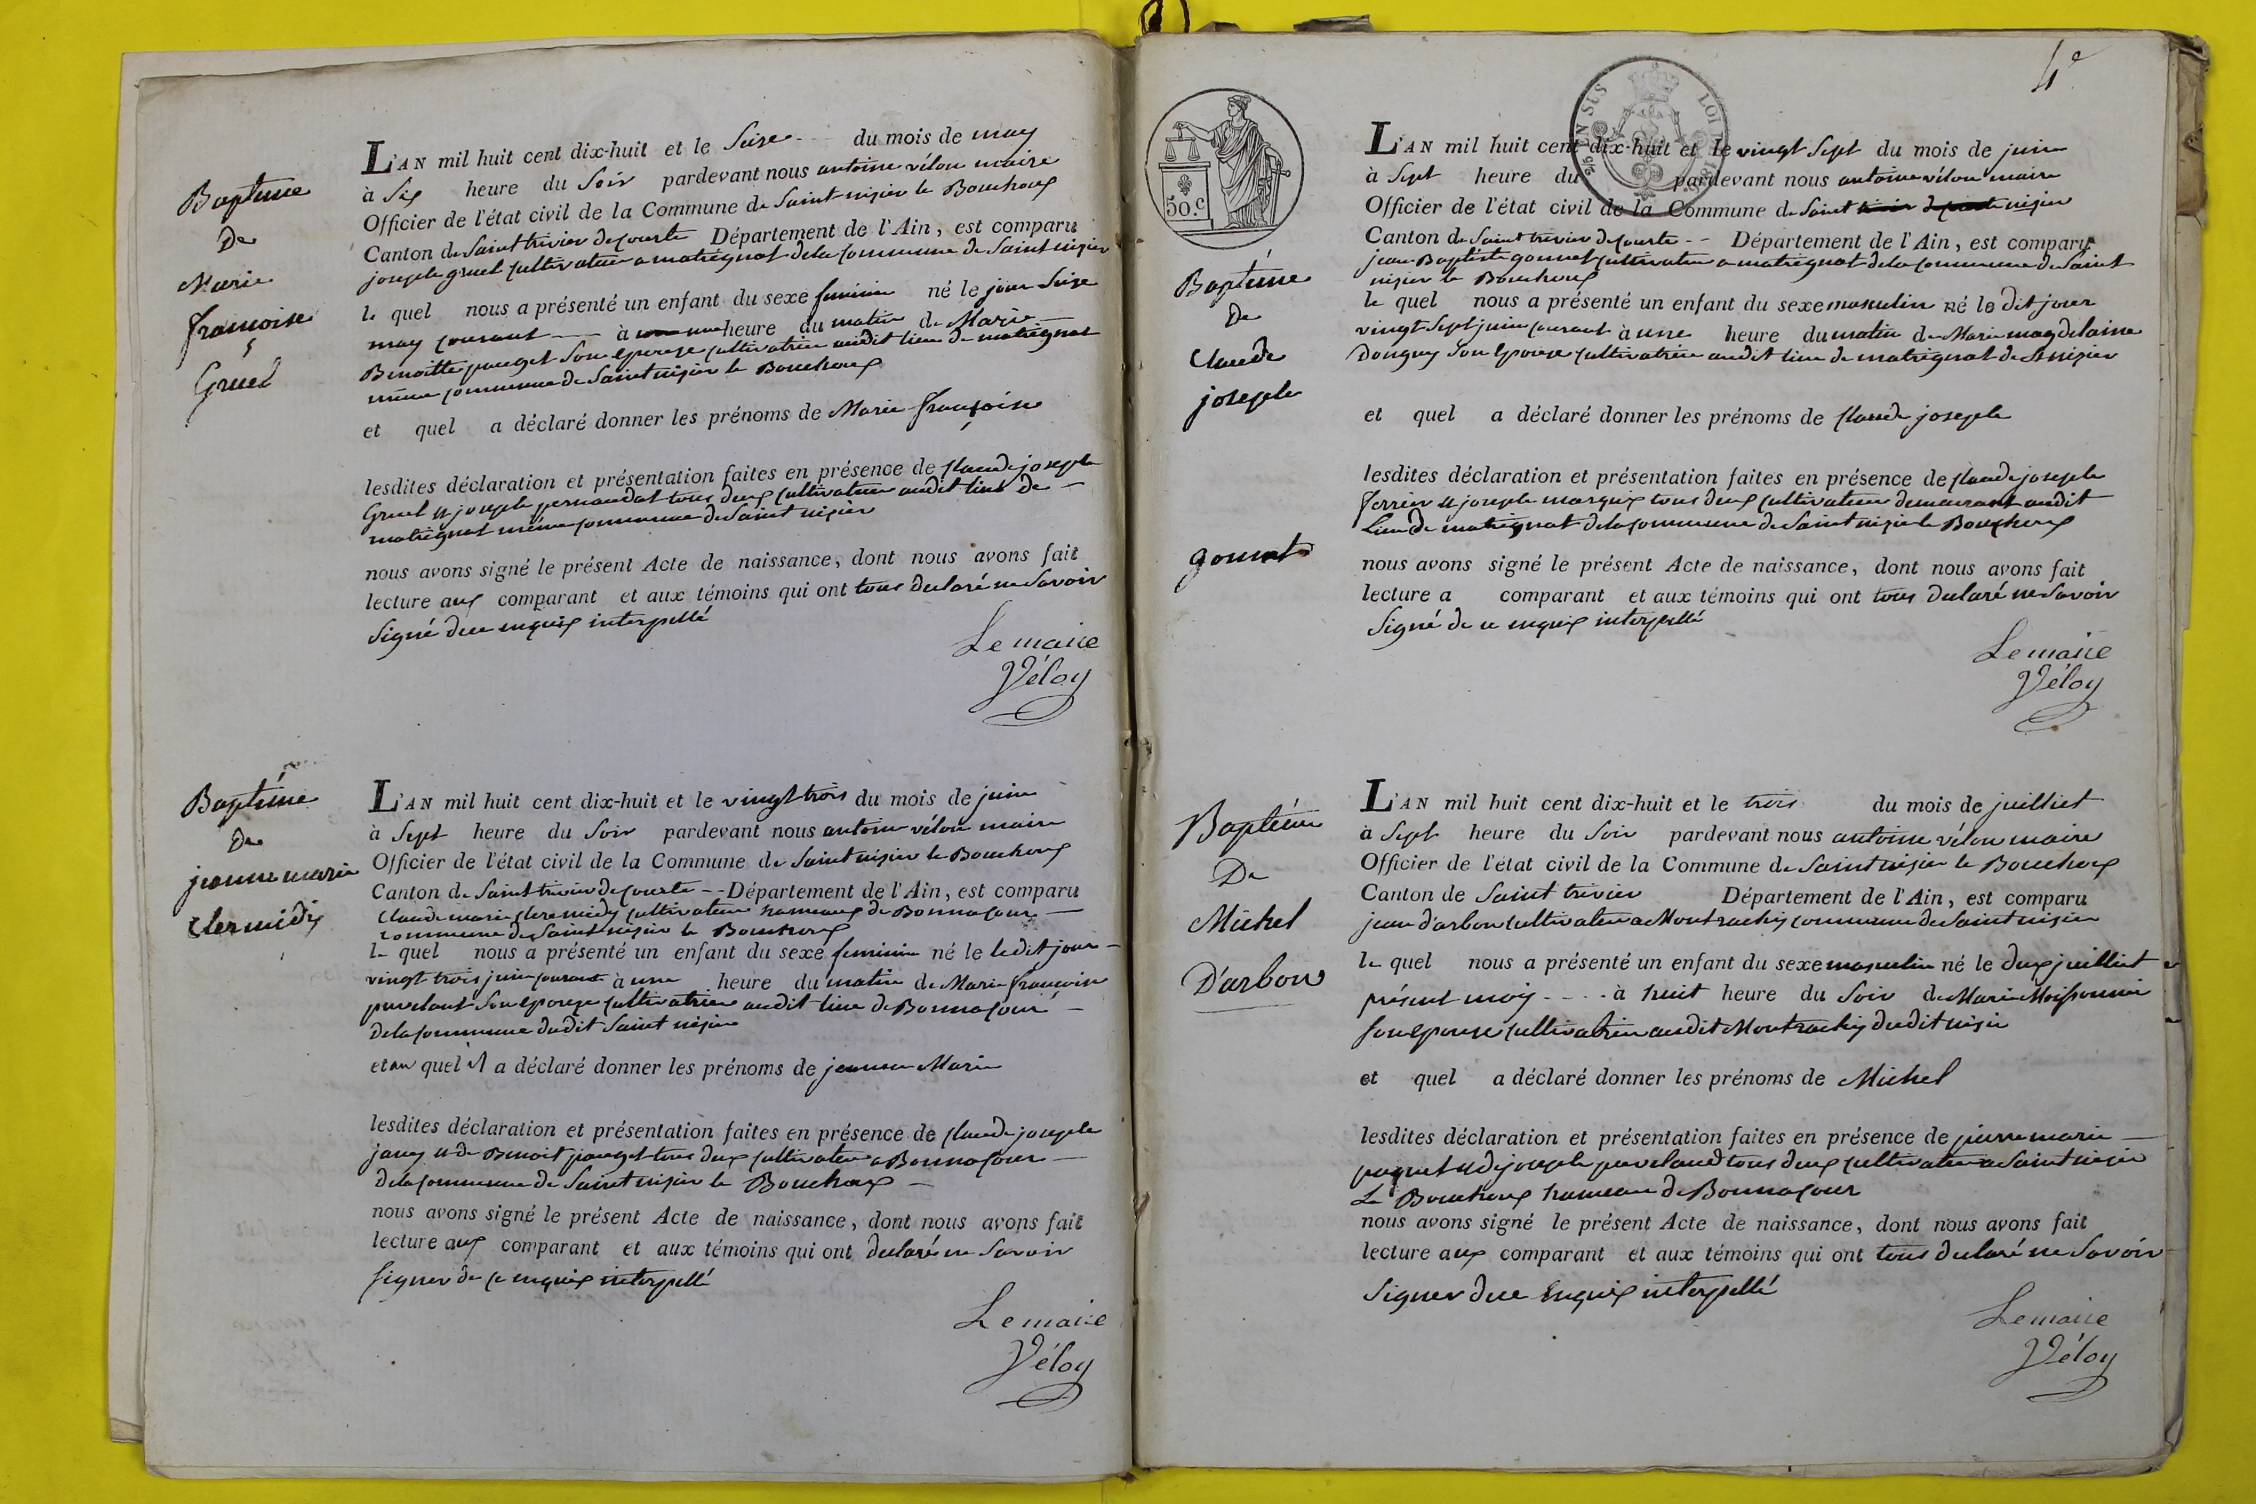 Baptême
De
Marie
françoise
Gruel
L'AN mil huit cent dix-huit et le Seise du mois de may
à Six heure du Soir pardevant nous antoine véloy maire
Officier de l'état civil de la Commune de Saint nizier le Bouchoux
Canton de Saint trivier de courte Département de l'Ain, est comparu
joseph gruel cultivateur a matrignat de la commune de Saint nizier
le quel nous a présenté un enfant du sexe feminin né le jour Seize
may courant à une heure du matin de Marie
Benoitte pauget Son epouse cultivatrice audit lieu de matrignat
même commune de Saint nizier le Bouchoux
et quel a déclaré donner les prénoms de Marie françoise
lesdites déclaration et présentation faites en présence de claude joseph
Gruel et joseph pernaudat tous deux cultivateur audit lieu de
matrignat même commune de Saint nizier
nous avons signé le présent Acte de naissance, dont nous avons fait
lecture aux comparant et aux témoins qui ont tous declaré ne Savoir
Signé de ce enquis interpellé
Le maire
Véloy
Baptême
De
jeanne marie
clermidy
L'AN mil huit cent dix-huit et le vingt trois du mois de juin
à Sept heure du Soir pardevant nous antoine véloy maire
Officier de l'état civil de la Commune de Saint nizier le Bouchoux
Canton de Saint trivier de courte Département de l'Ain, est comparu
Claude marie cleremidy cultivateur hameaux de Bonnacour
commune de Saint nizier le Bouchoux
le quel nous a présenté un enfant du sexe feminin né le ledit jour
vingt trois juin courant à une heure du matin de Marie francoise
Son epouse cultivatrice audit lieu de Bonnacour
de la commune dudit Saint nizier
et au quel il a déclaré donner les prénoms de jeanne Marie
lesdites déclaration et présentation faites en présence de claude joseph
et de Benoit pauget tous deux cultivateur a Bonnacour
de la commune de Saint nizier le Bouchoux
nous avons signé le présent Acte de naissance, dont nous avons fait
lecture aux comparant et aux témoins qui ont declaré ne Savoir
signer de ce enquis interpellé
Le maire
Véloy
4e
50.c
Baptême
De
Claude
joseph
gonnet
L'AN mil huit cent dix-huit et le vingt Sept du mois de juin
à Sept heure du pardevant nous antoine véloy maire
Officier de l'état civil de la Commune de Saint nizier
Canton de Saint trivier de courte Département de l'Ain, est comparu
jean Baptiste gonnet cultivateur a matrignat de la commune de Saint
nizier le Bouchoux
le quel nous a présenté un enfant du sexe masculin né le dit jour
vingt Sept juin courant à une heure du matin de Marie magdelaine
Donguy Son epouse cultivatrice audit lieu de matrignat de St nizier
et quel a déclaré donner les prénoms de claude joseph
lesdites déclaration et présentation faites en présence de claude joseph
ferrier et joseph marquis tous deux cultivateur demeurant audit
Lieu de matrignat de la commune de Saint nizier le Bouchoux
nous avons signé le présent Acte de naissance, dont nous avons fait
lecture a comparant et aux témoins qui ont tous declaré ne Savoir
Signé de ce enquis interpellé
Le maire
Véloy
Baptême
De
Michel
D'arbon
L'AN mil huit cent dix-huit et le trois du mois de juilliet
à Sept heure du Soir pardevant nous antoine véloy maire
Officier de l'état civil de la Commune de Saint nizier le Bouchoux
Canton de Saint trivier Département de l'Ain, est comparu
jean d'arbon cultivateur a Montrachy commune de Saint nizier
le quel nous a présenté un enfant du sexe masculin né le deux juilliet
présent mois à huit heure du Soir de Marie Moissonnier
son epouse cultivatrice audit Montrachy dudit nizier
et quel a déclaré donner les prénoms de Michel
lesdites déclaration et présentation faites en présence de pierre marie
et de joseph tous deux cultivateur a Saint nizier
Le Bouchoux hameau de Bonnacour
nous avons signé le présent Acte de naissance, dont nous avons fait
lecture aux comparant et aux témoins qui ont tous declaré ne Savoir
Signer de ce Enquis interpellé
Le maire
Véloy